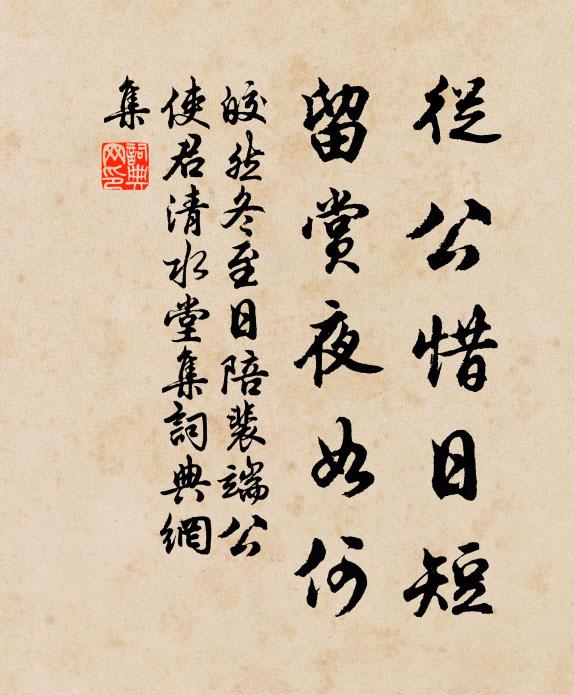 從公惜日短
留賞夜如何
皎然冬至日陪裴端公
使君清水堂集詞典網
集
詞典網印